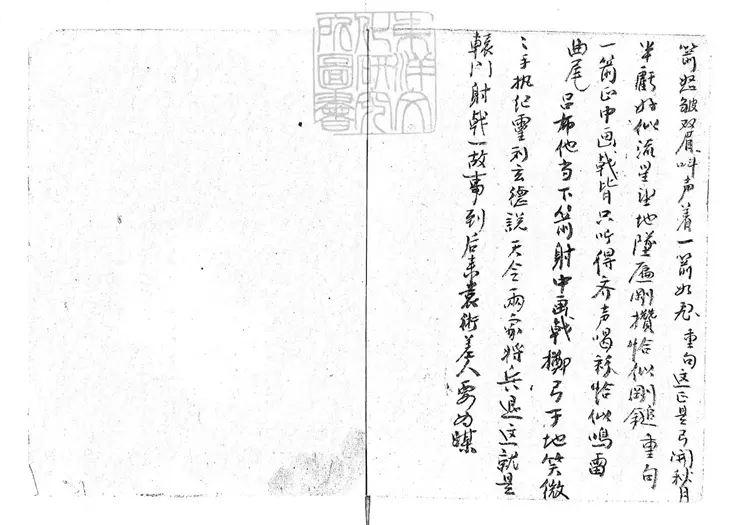 箭怒皱双眉叫声着一箭如飛重句这正是弓開秋月
半虧好似流星坐地墜雁剛攢恰似剛錐重句
一箭正中画戟皆只听得齐声喝彩恰似鳴雷
曲尾 吕布他当下箭射中画戟擲弓于地笑微
〻手执纪霊刘玄德説天令兩家将兵退这就是
轅门射戟一故事到后来袁術差人要为媒
東洋文
化研究
所圖書